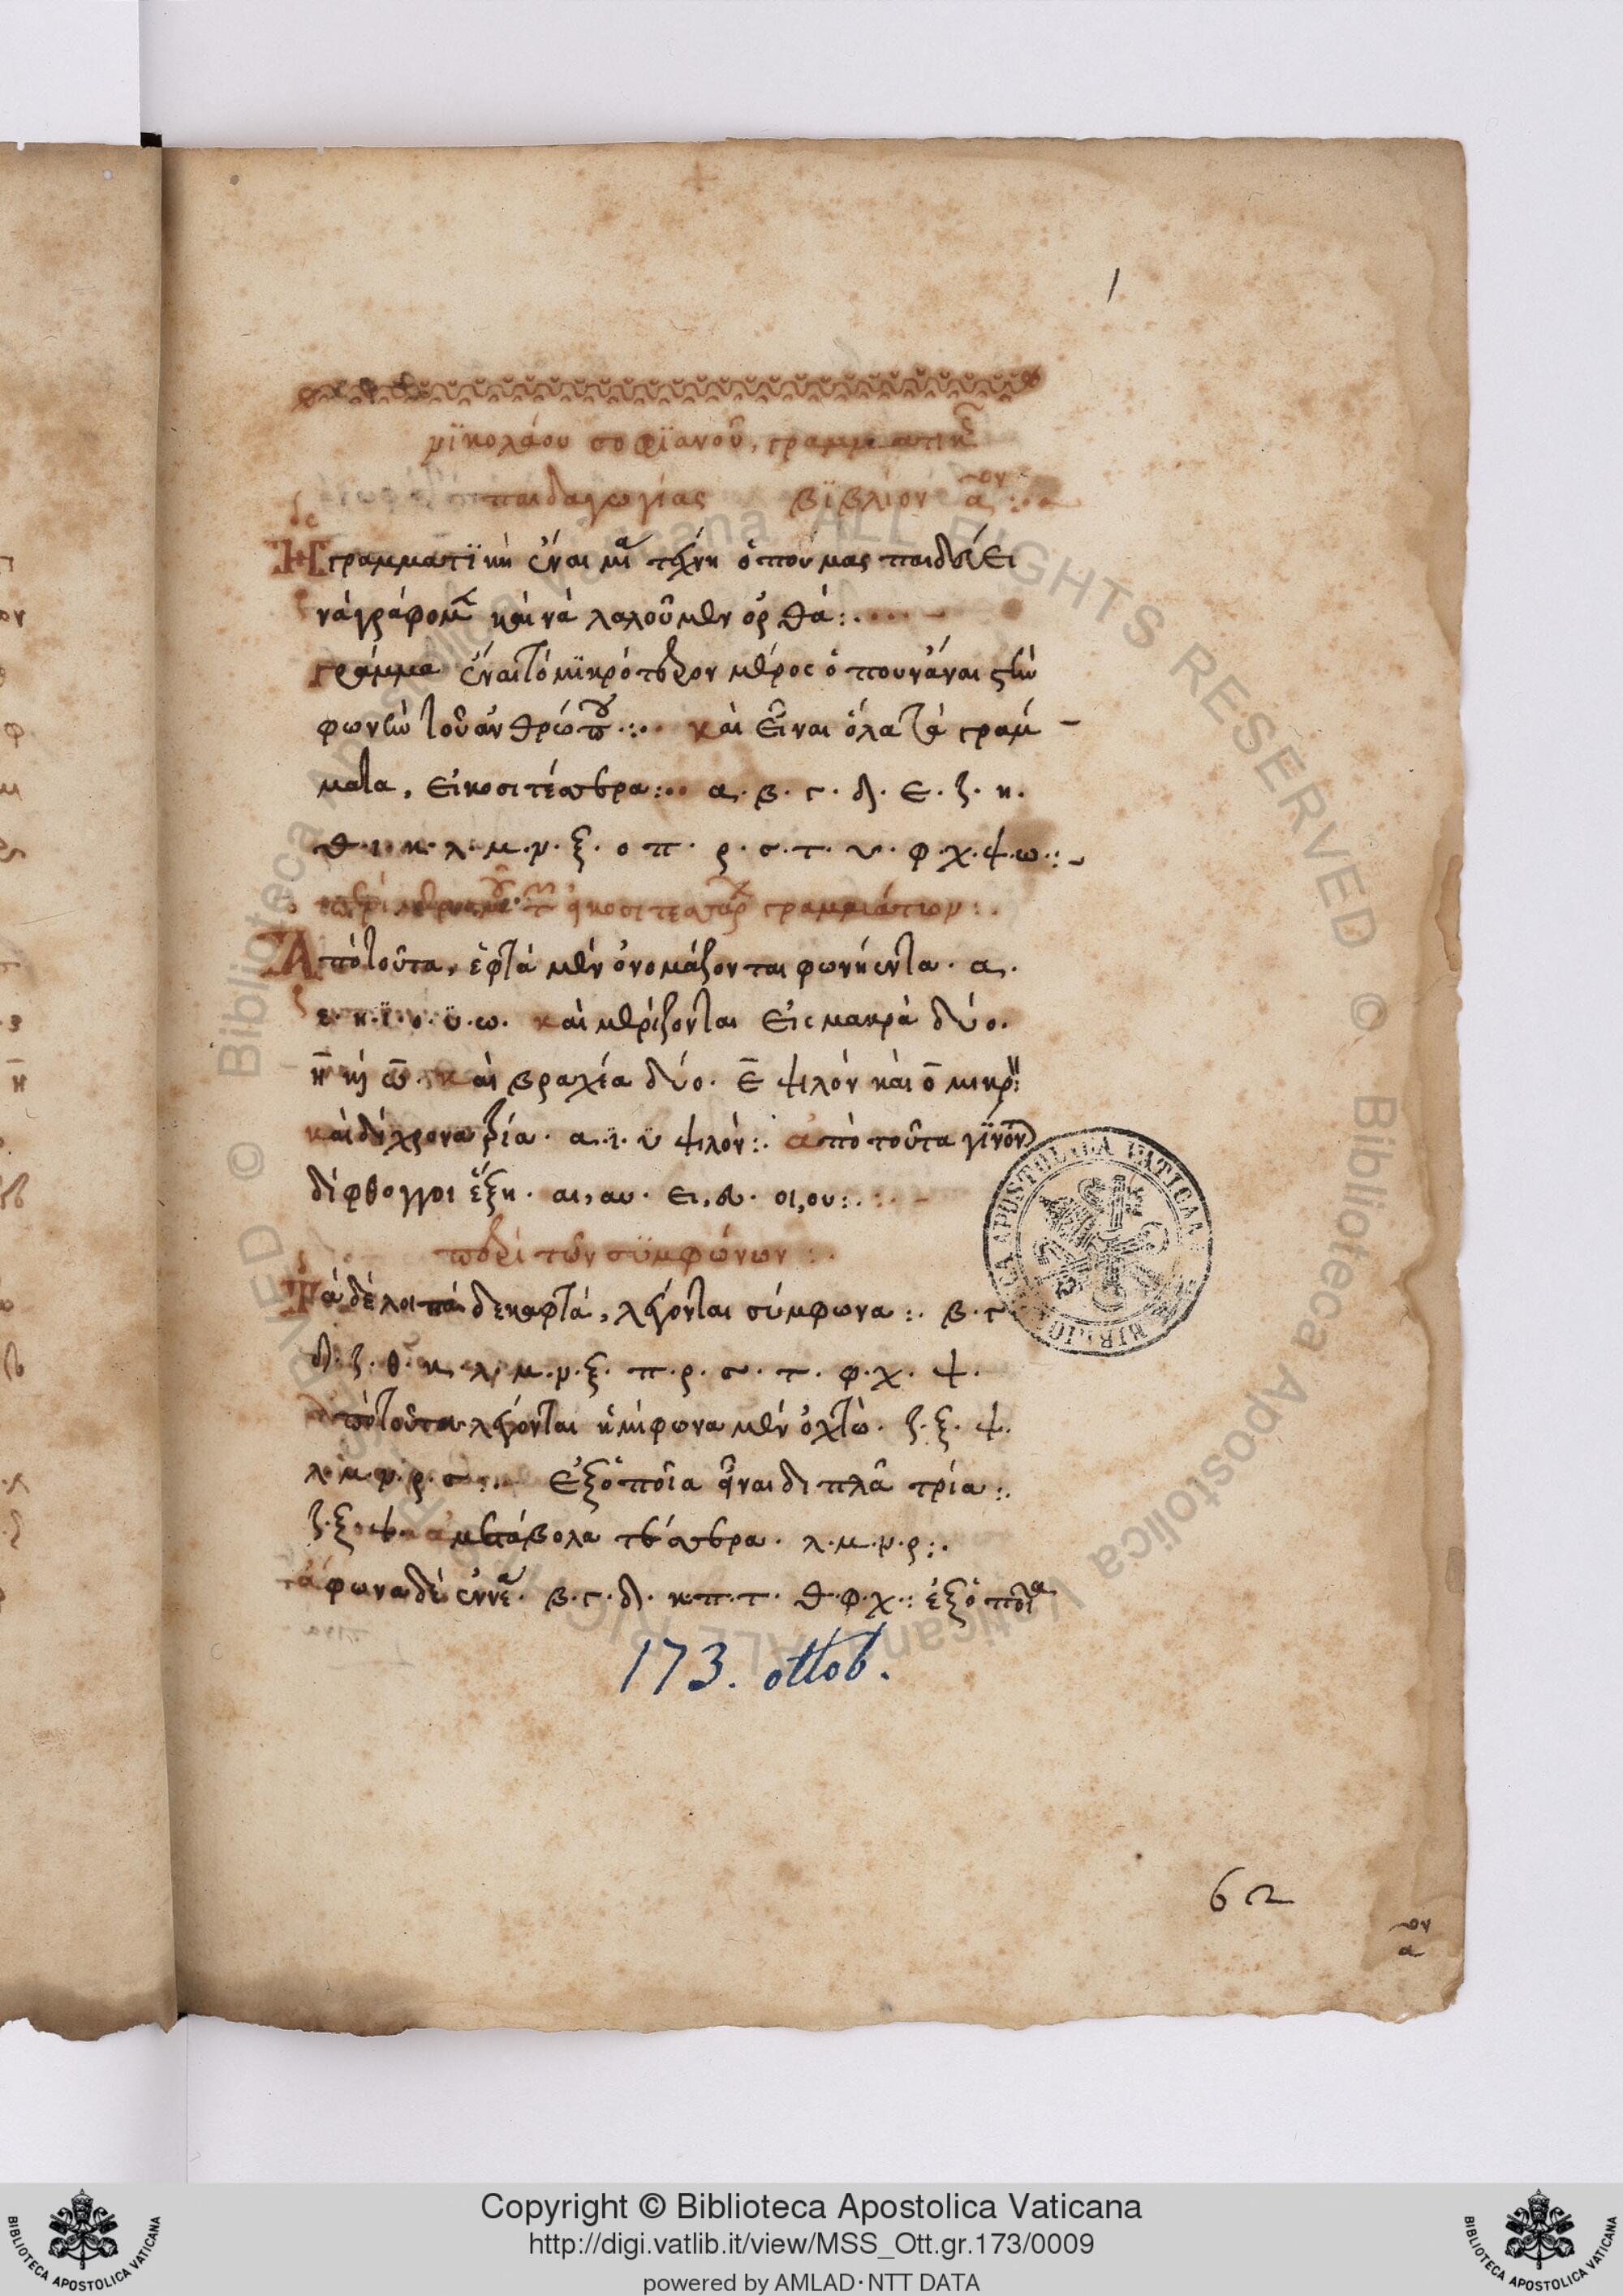 1
νϊκολάου σοφϊανοῦ, γραμματικῆς
παιδαγωγίας βϊβλίον α ον :.
Ἡ γραμματϊκὴ ἔναι μία τέχνη ὁποῦ μας παιδεύει
νὰ γράφομεν καὶ νὰ λαλοῦμεν ὀρθά :.
γράμμα ἔναι τὸ μϊκρότερον μέρος ὁποῦ νἆναι στὴν
φωνὴν τοῦ ἀνθρώπου :. καὶ εἶναι ὅλα τὰ γράμ-
ματα, εἰκοσιτέσσερα :. α. β. γ. δ. ε. ζ. η.
θ. ι. κ. λ. μ. ν. ξ. ο π. ρ. σ. τ. υ. φ. χ. ψ. ω :.
γραμμάτων :.
Ἀπὸ τοῦτα, ἑφτὰ μὲν ὀνομάζονται φωνήεντα. α.
ε. η. ϊ. ο. ϋ. ω. καὶ μερίζονται εἰς μακρὰ δύο.
η καὶ ω. καὶ βραχέα δύο. ε ψιλόν καὶ ο μικρόν :
καὶ δίχρονα τρία. α. ϊ. υ ψιλόν :. ἀπὸ τοῦτα γίνονται
δίφθογγοι ἕξη. αι, αυ. ει, ευ. οι, ου :.
περὶ τῶν σϋμφώνων :.
Τὰ δὲ λοιπὰ δεκαφτά, λέγονται σύμφωνα :. β. γ
δ. ζ. θ. κ. λ. μ. ν. ξ. π. ρ. σ. τ. φ. χ. ψ.
ἀπὸ τοῦτα λέγονται ἡμίφωνα μὲν ὀχτώ. ζ. ξ. ψ.
λ. μ. ν. ρ. σ :. ἐξ ὁποῖα εἶναι διπλᾶ τρία :.
ζ. ξ. ψ. ἀμετάβολα τέσσερα. λ. μ. ν. ρ :.
τἄφωνα δὲ ἐννέα. β. γ. δ. κ. π. τ. θ. φ. χ : ἐξ ὁποῖα
173. ottob.
62
ον
α
Copyright © Biblioteca Apostolica Vaticana
http://digi.vatlib.it/view/MSS_Ott.gr.173/0009
powered by AMLAD·NTT DATA
BIBLIOTECA APOSTOLICA VATICANA
BIBLIOTECA APOSTOLICA VATICANA